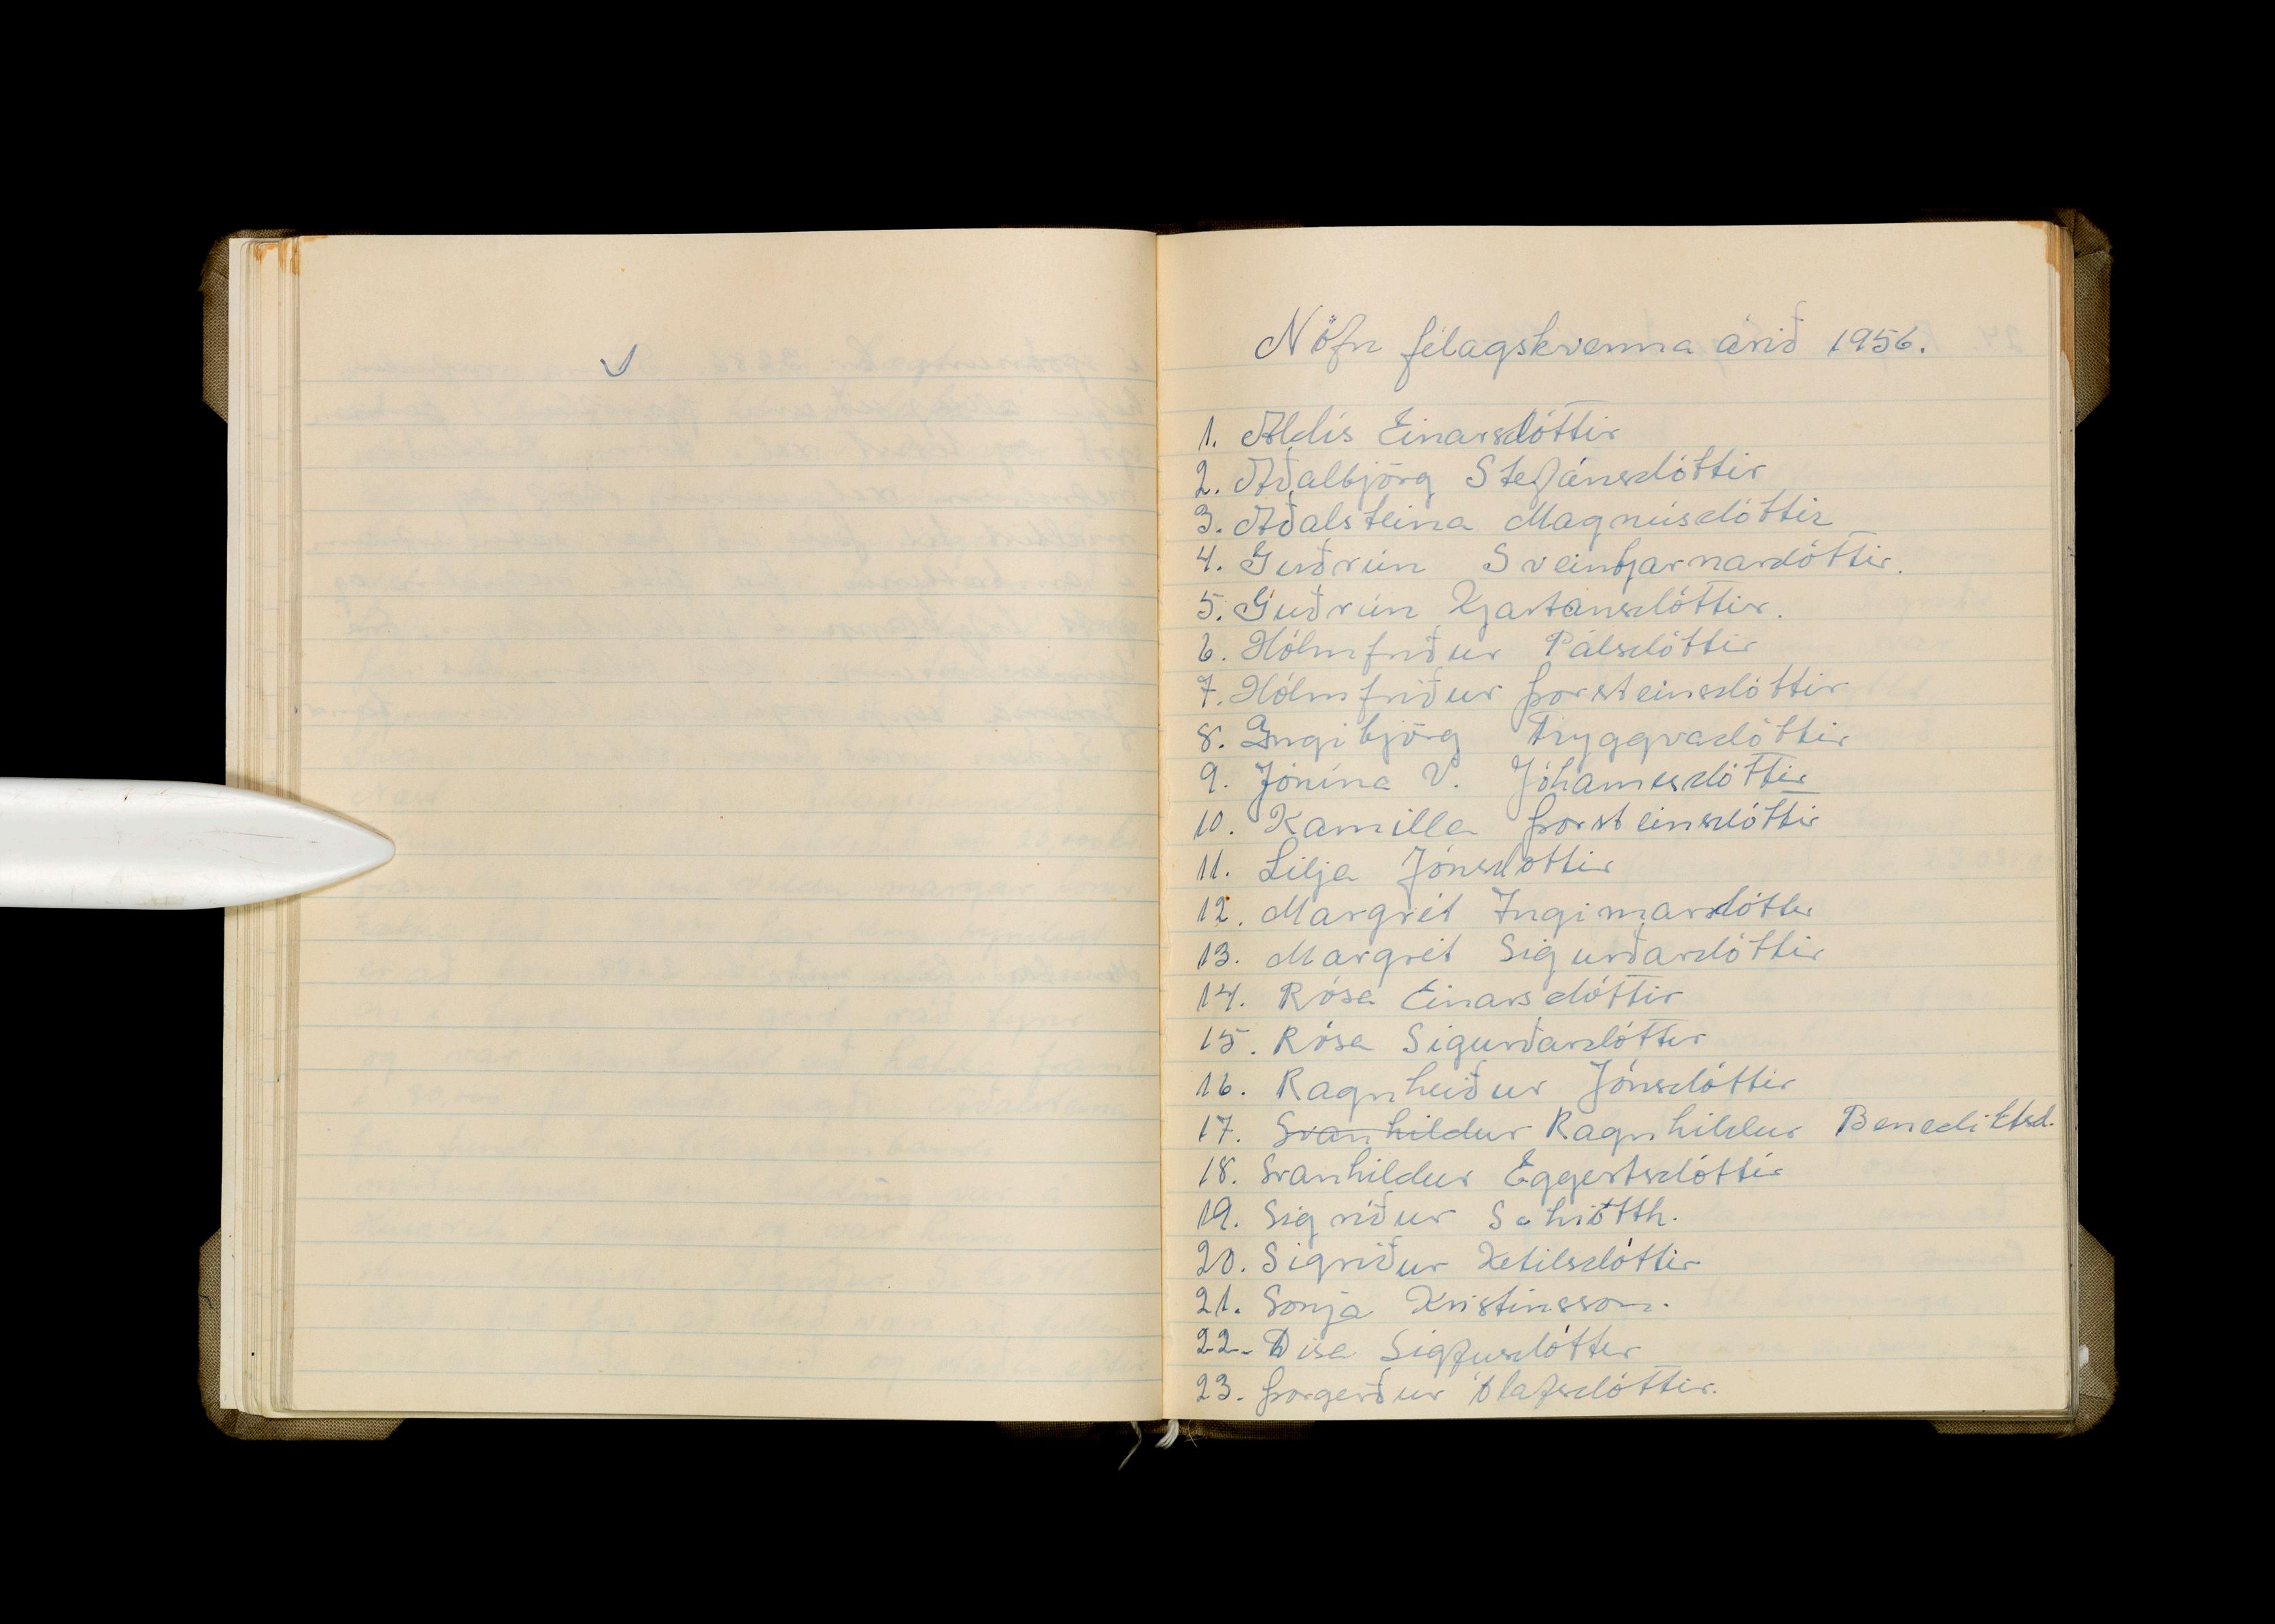 Nöfn félagskvenna árið 1956.
1. Aldís Einarsdóttir
2. Aðalbjörg Stefánsdóttir
3. Aðalsteina Magnúsdóttir
4. Guðrún Sveinbjarnardóttir.
5. Guðrún Kjartansdóttir.
6. Hólmfríður Pálsdóttir
7. Hólmfríður Þorsteinsdóttir
8. Ingibjörg Tryggvadóttir
9. Jónína V. Jóhannesdóttir
10. Kamilla Þorsteinsdóttir
11. Lilja Jónsdóttir
12. Margrét Ingimarsdóttir
13. Margrét Sigurðardóttir
14. Rósa Einarsdóttir
15. Rósa Sigurðardóttir
16. Ragnheiður Jónsdóttir
17. Svanhildur Ragnhildur Benediktsd.
18. Svanhildur Eggertsdóttir
19. Sigríður Schiötth.
20. Sigríður Ketilsdóttir
21. Sonja Kristinsson.
22. Dísa Sigfúsdóttir
23. Þorgerður Ólafsdóttir.